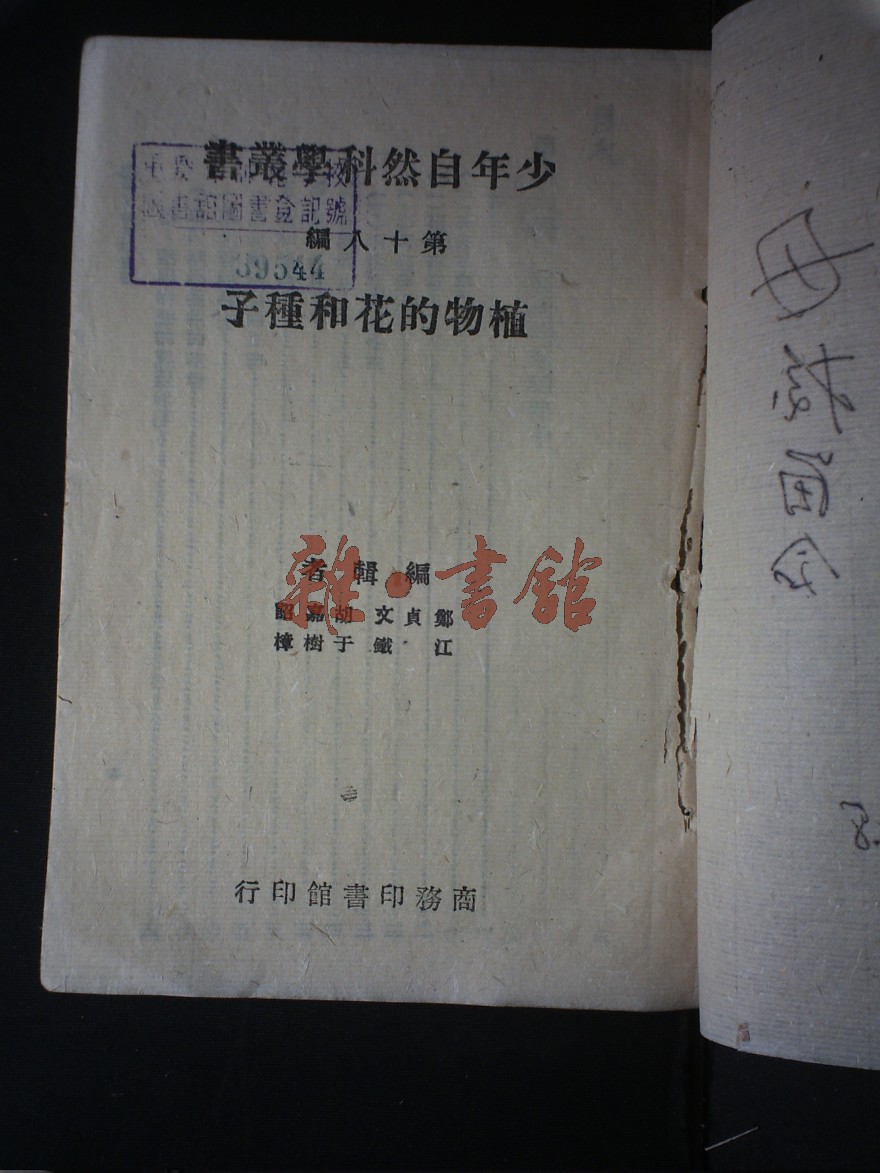 少年自然科學叢書
圖書登記號
39544
第十八編
植物的花和種子
雜·書館
編輯者
鄭貞文 胡嘉詔
江鐵 于樹樟
商務印書館印行